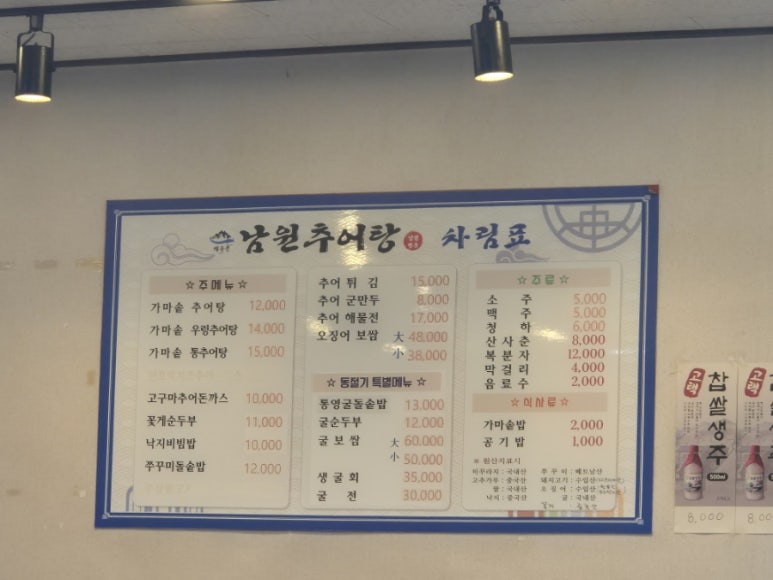 남원추어탕 차림표
☆ 주메뉴 ☆
가마솥 추어탕 12,000
가마솥 우렁추어탕 14,000
가마솥 통추어탕 15,000
고구마추어돈까스 10,000
꽃게순두부 11,000
낙지비빔밥 10,000
쭈꾸미돌솥밥 12,000
추어 튀김 15,000
추어 군만두 8,000
추어 해물전 17,000
오징어 보쌈 大 48,000
小 38,000
☆ 동절기 특별메뉴 ☆
통영굴돌솥밥 13,000
굴순두부 12,000
굴 보 쌈 大 60,000
小 50,000
생 굴 회 35,000
굴 전 30,000
☆ 주류 ☆
소 주 5,000
맥 주 5,000
청 하 6,000
산 사 춘 8,000
복 분 자 12,000
막 걸 리 4,000
음 료 수 2,000
☆ 식사류 ☆
가마솥밥 2,000
공 기 밥 1,000
※ 원산지표시
미꾸라지 : 국내산 쭈 꾸 미 : 베트남산
고추가루 : 중국산 돼지고기 : 수입산
쌀 : 국내산 오 징 어 : 수입산
낙지 : 중국산 굴 : 국내산
고택
찹쌀생주
500ml
8,000
고택
8,00